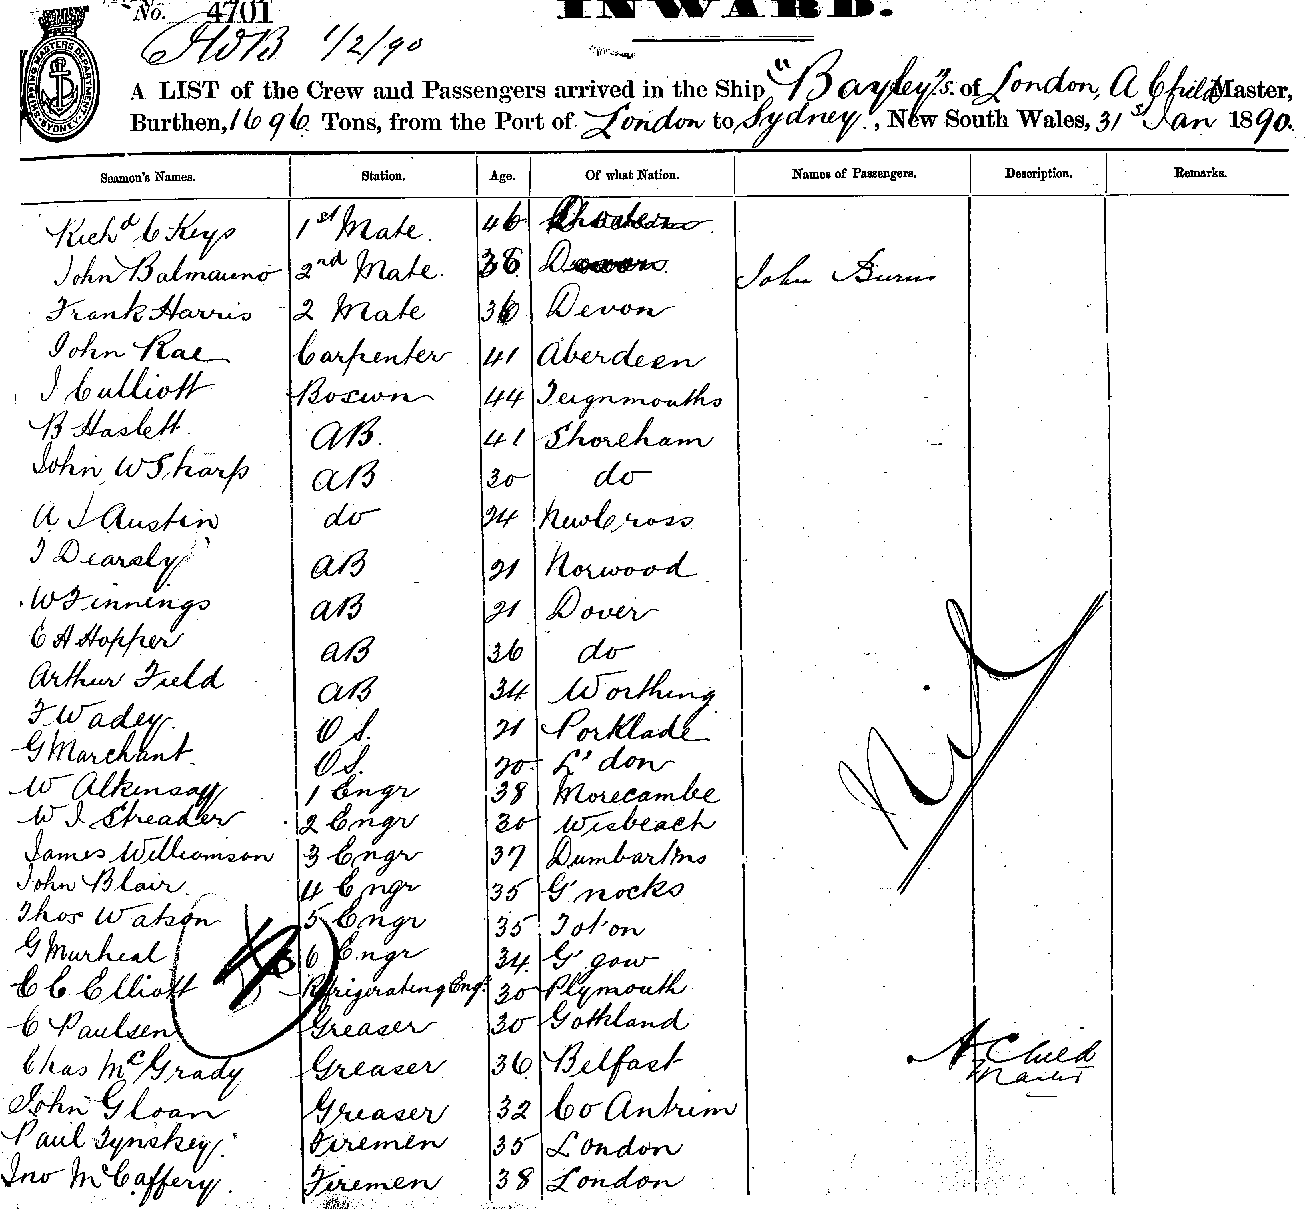 No. 4701
INWARD.
1/2/90
A LIST of the Crew and Passengers arrived in the Ship "Bayley" s.s. of London, A Child Master,
Burthen, 1696 Tons, from the Port of London to Sydney, New South Wales, 31st Jan 1890.
Seamen's Names. Station. Age. Of what Nation. Names of Passengers. Description. Remarks.
Richd C Keys 1st Mate. 46
John Balmauno 2nd Mate. 38 John Burns
Frank Harris 2 Mate 36 Devon
John Rae Carpenter 41 Aberdeen
J Culliott Boswn 44 Teignmouths
B Haslett AB. 41 Shoreham
John W Sharp AB 30 do
A J Austin do 24 New Cross
T Dearsly AB 21 Norwood
W Finnings AB 21 Dover
E A Hopper AB 36 do
Arthur Field AB 34 Worthing
F Wadey O S. 21 Porklade
G Marchant OS. 20 L'don
W Atkinson 1 Engr 38 Morecambe
W J Streader 2 Engr 30 Wisbeach
James Williamson 3 Engr 37 Dumbartons
John Blair 4 Engr 35 G'nocks
Thos Watson 5 Engr 35
G Murheal 6 Engr 34 G'gow
C C Elliott Refrigirating Engr 30 Plymouth
C Paulsen Greaser 30 Gothland
Chas McGrady Greaser 36 Belfast
John Gloan Greaser 32 Co Antrim
Paul Tynskey Firemen 35 London
Jno McCaffery Firemen 38 London
Nil
A Child
Master